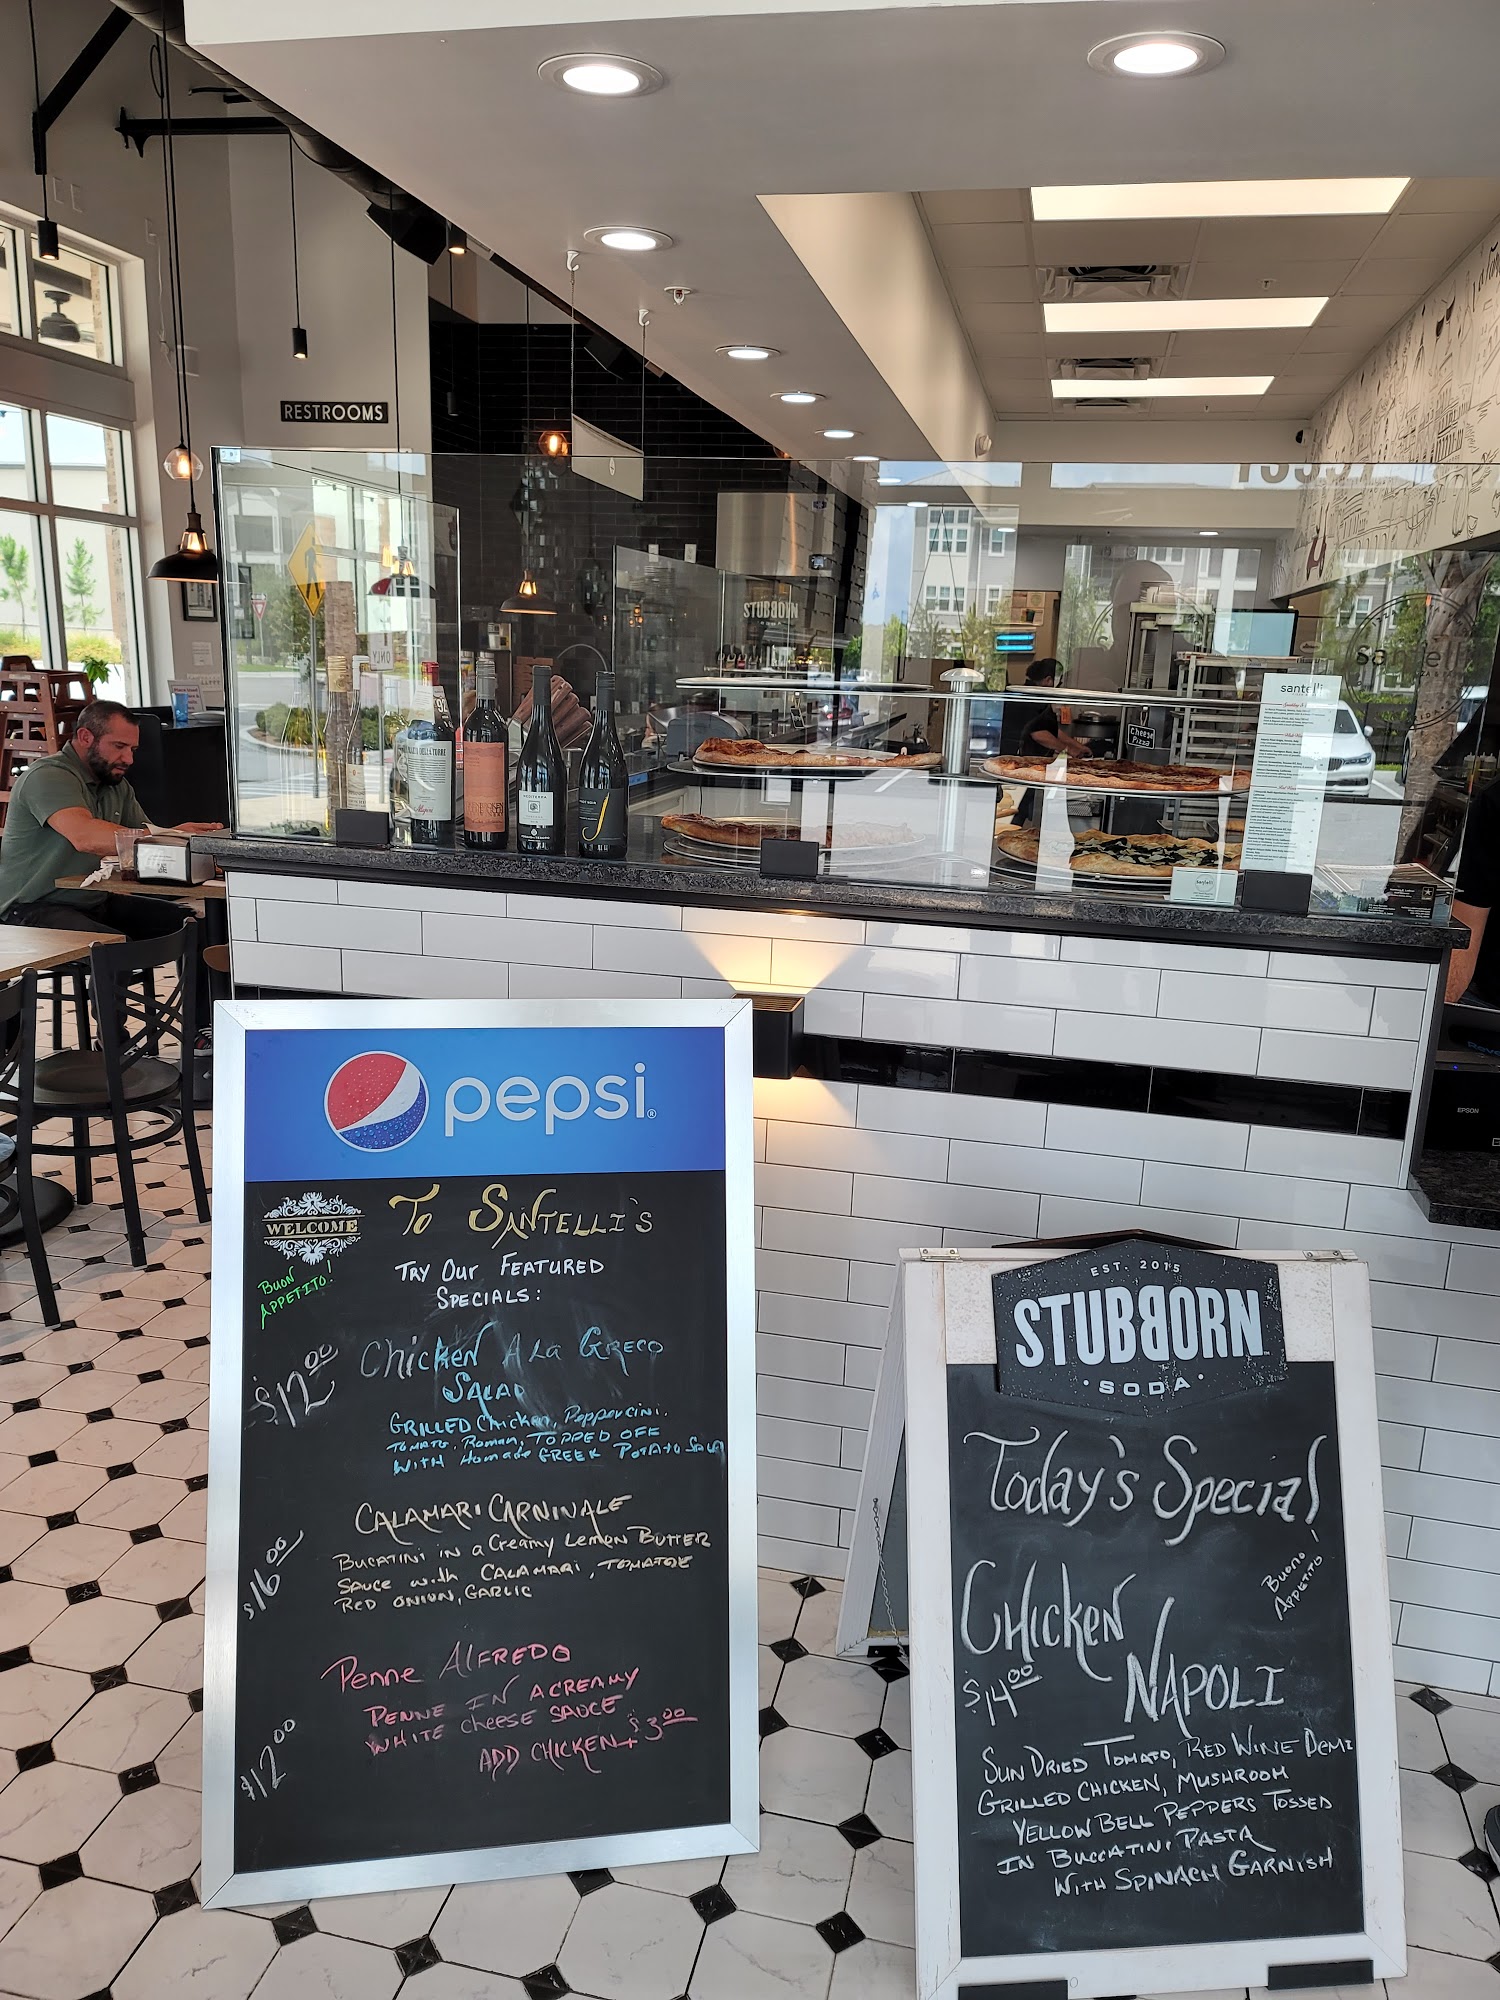 RESTROOMS
ONLY
STUBBORN
SODA
Cheese
Pizza
santelli
92
EPSON
pepsi
WELCOME
To Santelli's
Buon
Appetito!
Try Our Featured
Specials:
$12.00
Chicken A La Greco
Salad
Grilled Chicken, Pepporcini.
Tomato, Roman, Topped off
with Homade Greek Potato Salad
$16.00
Calamari Carnivale
Bucatini in a Creamy Lemon Butter
Sauce with Calamari, Tomatoe
Red Onion, Garlic
$12.00
Penne Alfredo
Penne in a creamy
white cheese sauce
Add Chicken + $3.00
EST. 2015
STUBBORN
SODA
Today's Special!
Buono
Appetito
Chicken
Napoli
$14.00
Sun Dried Tomato, Red Wine Demi
Grilled Chicken, Mushroom
Yellow Bell Peppers Tossed
in Buccatini Pasta
with Spinach Garnish